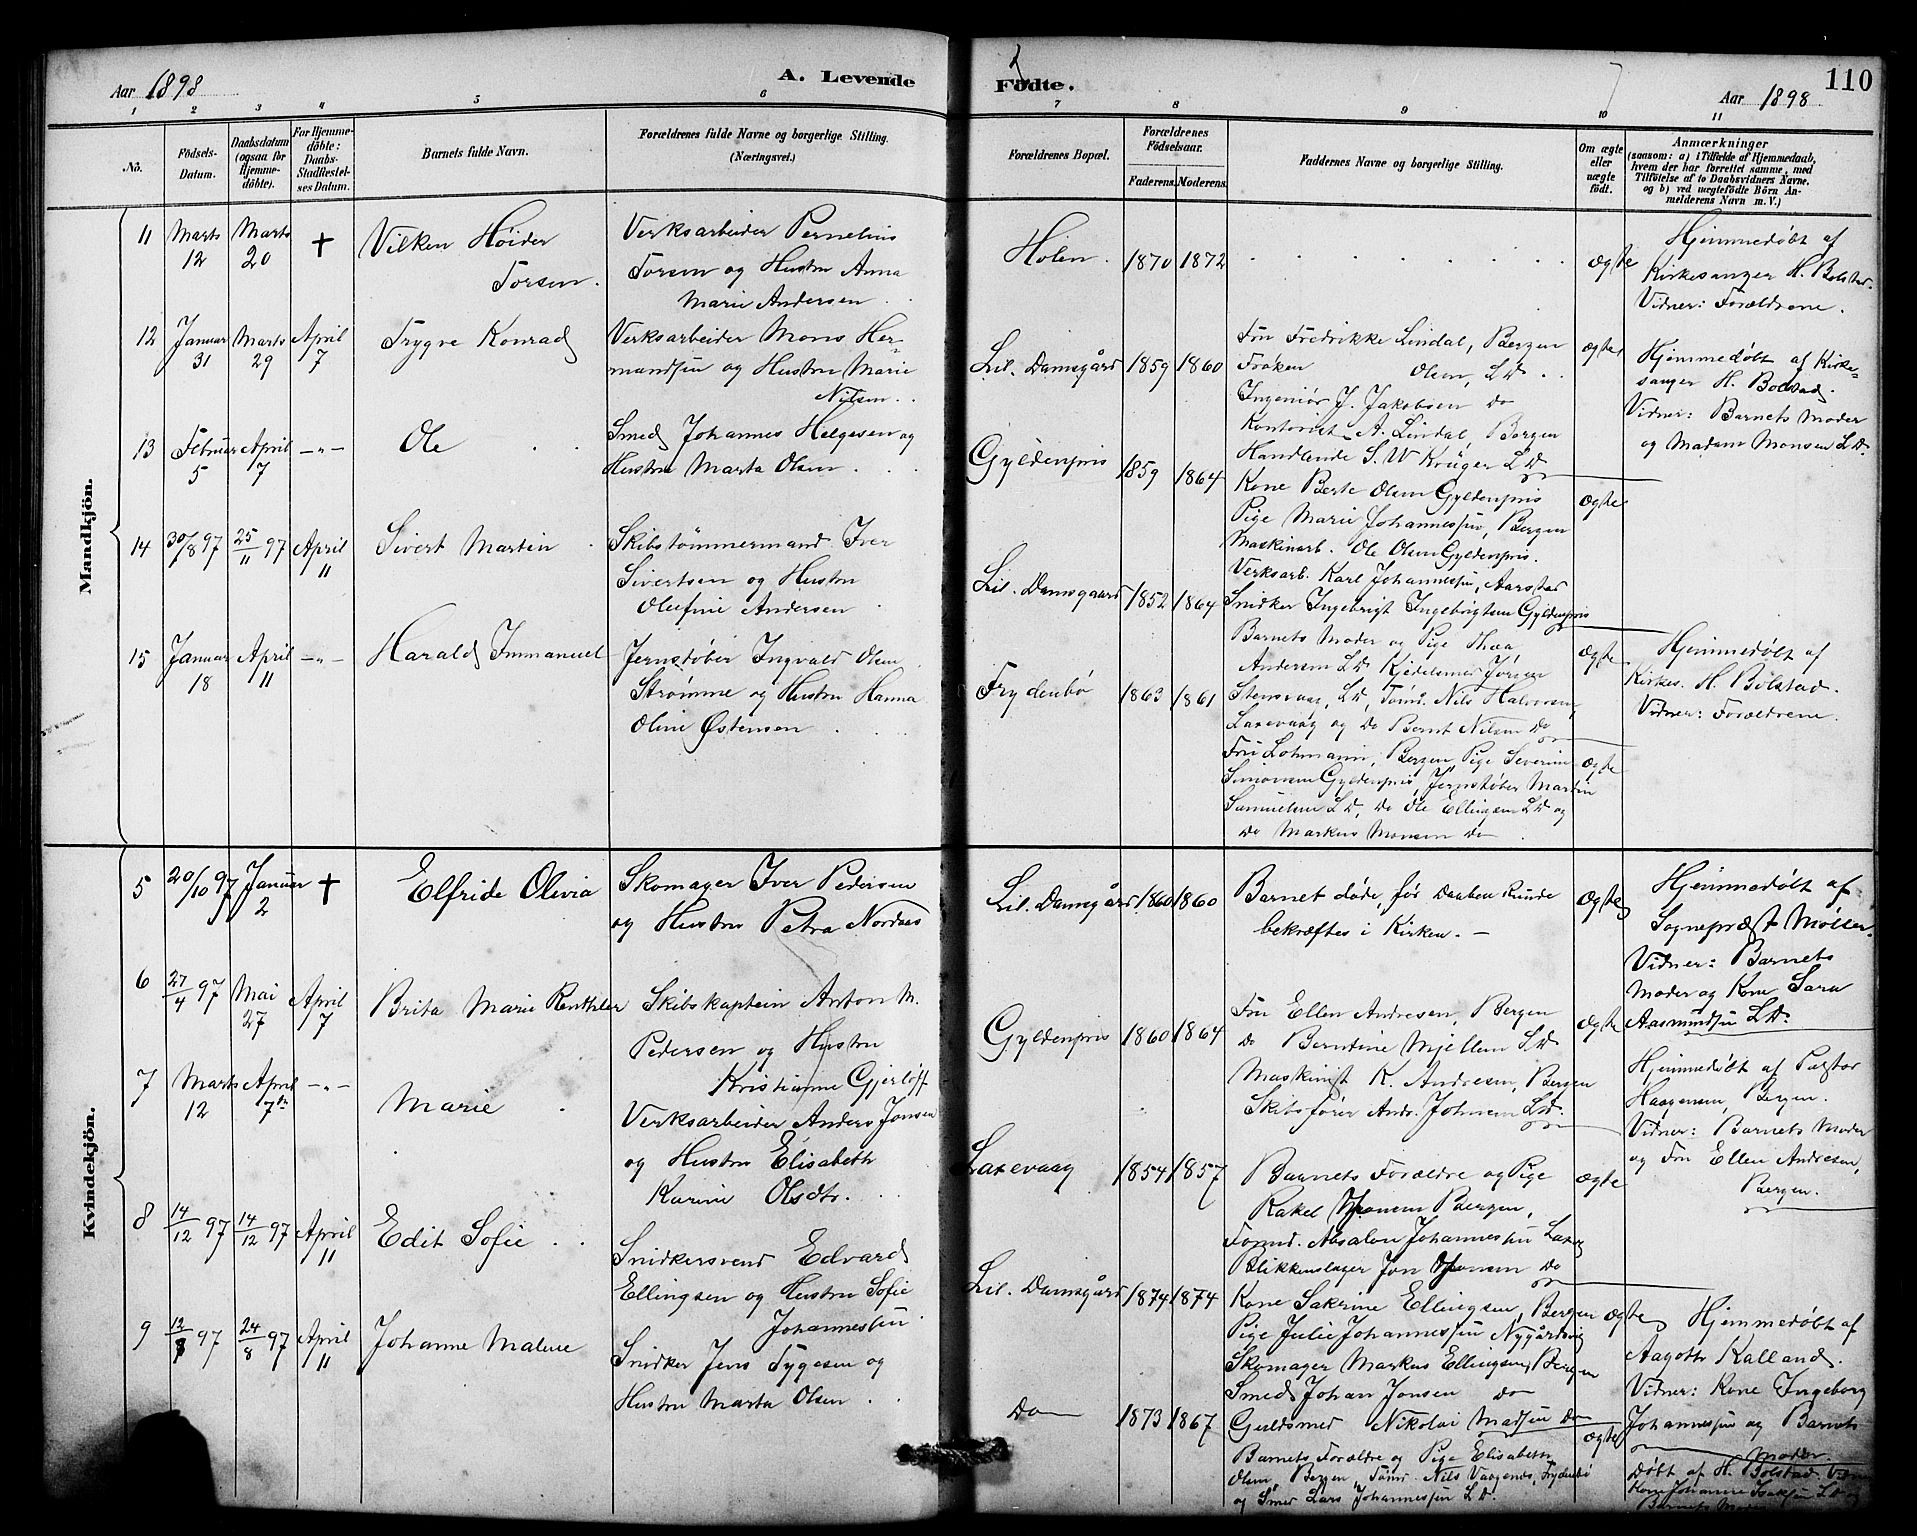 Aar 1898
A. Levende
Födte.
110
Aar 1898
1 2 3 4 5 6 7 8 9 10 11
No.
Födsels-Datum.
Daabsdatum (ogsaa for Hjemmedöbte).
For Hjemmedöbte: Daabs-Stadfæstelses Datum.
Barnets fulde Navn.
Forældrenes fulde Navne og borgerlige Stilling. (Næringsvei.)
Forældrenes Bopæl.
Forældrenes Födselsaar.
Faderens. Moderens.
Faddernes Navne og borgerlige Stilling.
Om ægte eller uægte födt.
Anmærkninger
(saasom: a) i Tilfælde af Hjemmedaab, hvem der har forrettet samme, med Tilföielse af to Daabsvidners Navne, og b) ved uægtefödte Börn Anmelderens Navn m. V.)
Mandkjön.
11 Marts 12 Marts 20 †
Vilken Höider
Torsen.
Verksarbeider Pernelius
Torsen og Hustru Anna
Marie Andersen
Holen. 1870 1872
ægte
Hjemmedøbt af
Kirkesanger H. Bolstad.
Vidner: Forældrene.
12 Januar 31 Marts 29 April 7
Trygve Konrad
Verksarbeider Mons Her-
mandsen og Hustru Marie
Nilsen.
Lil. Damsgård 1859 1860
Fru Fredrikke Lindal, Bergen
Frøken Olsen, LD.
Ingeniør J. Jakobsen do
Kontorist A. Lindal, Bergen
Handlende S. W Krüger LD
ægte
Hjemmedøbt af Kirke-
sanger H. Bolstad.
Vidner: Barnets Moder
og Madam Monsen LD.
13 Februar 5 April 7 -"-
Ole
Smed Johannes Helgesen og
Hustru Marta Olsen
Gyldenpris 1859 1864
Kone Berte Olsen Gyldenpris
Pige Marie Johannessen, Bergen
Maskinarb. Ole Olsen Gyldenpris.
Verksarb. Karl Johannessen, Aarstad
Snidker Ingebrigt Ingebrigtsen Gyldenpris
ægte
14 30/8 97 25/11 97 April 11
Sivert Martin
Skibstømmermand Iver
Sivertsen og Hustru
Olufine Andersen
Lil. Damsgaard 1852 1864
Barnets Moder og Pige Thea
Andersen LD Kjedelsmed Jørgen
Stensvaag, LD, Tømr. Nils Halvorsen,
Laxevaag og do Bernt Nilsen do
ægte
Hjemmedøbt af
Kirkes. H. Bolstad.
Vidner: Forældrene.
15 Januar 18 April 11 -"-
Harald Immanuel
Jernstøber Ingvald Olsen
Strømme og Hustru Hanna
Oline Østensen
Frydenbø 1863 1861
Fru Lohmann, Bergen, Pige Severin
Simonsen Gyldenpris, Jernstøber Martin
Samuelsen LD, do Ole Ellingsen LD og
do Markus Monsen do
ægte
Kvindekjön.
5 20/10 97 Januar 2 †
Elfride Olivia
Skomager Iver Pedersen
og Hustru Petra Nordnes
Lil. Damsgård 1860 1860
Barnet døde, før Daaben kunde
bekræftes i Kirken. -
ægte
Hjemmedøbt af
Sognepræst Møller.
Vidner: Barnets
Moder og Kone Sara
Aasmundsen LD.
6 27/4 97 Mai 27 April 7
Brita Marie
Skibskaptein Anton M.
Pedersen og Hustru
Kristianne Gjerløff
Gyldenpris 1860 1864
Fru Ellen Andresen, Bergen
do Berntine Mjellem LD
Maskinist K. Andresen, Bergen
Skibsfører Andr. Johnsen LD.
ægte
Hjemmedøbt af Pastor
Haagensen, Bergen.
Vidner: Barnets Moder
og Fru Ellen Andresen,
Bergen.
7 Marts 12 April 7de -"-
Marie
Verksarbeider Anders Jansen
og Hustru Elisabeth
Karine Olsdtr.
Laxevaag 1854 1857
Barnets Forældre og Pige
Rakel Hansen Bergen,
Formd. Absalon Johannessen Laxv
Blikkenslager Jon Hansen do
ægte
8 14/12 97 14/12 97 April 11
Edit Sofie
Snidkersvend Edvard
Ellingsen og Hustru Sofie
Johannessen
Lil. Damsgård 1874 1874
Kone Sakrine Ellingsen, Bergen
Pige Julie Johannessen Nygårdsvig
Skomager Markus Ellingsen, Bergen
Smed Johan Jonsen do
Guldsmed Nikolai Madsen do
ægte
Hjemmedøbt af
Aagoth Kalland.
Vidner: Kone Ingeborg
Johannessen og Barnets
Moder.
9 12/8 97 24/8 97 April 11
Johanne Malene
Snidker Jens Tygesen og
Hustru Marta Olsen
do 1873 1867
Barnets Forældre og Pige Elisabeth
Olsen, Bergen, Tømr. Nils Vaagenes, Frydenbø
og Smed Lars Johannessen LD.
ægte
Døbt af H. Bolstad. Vidn
Kone Johanne Isaksen LD og
Barnets Moder